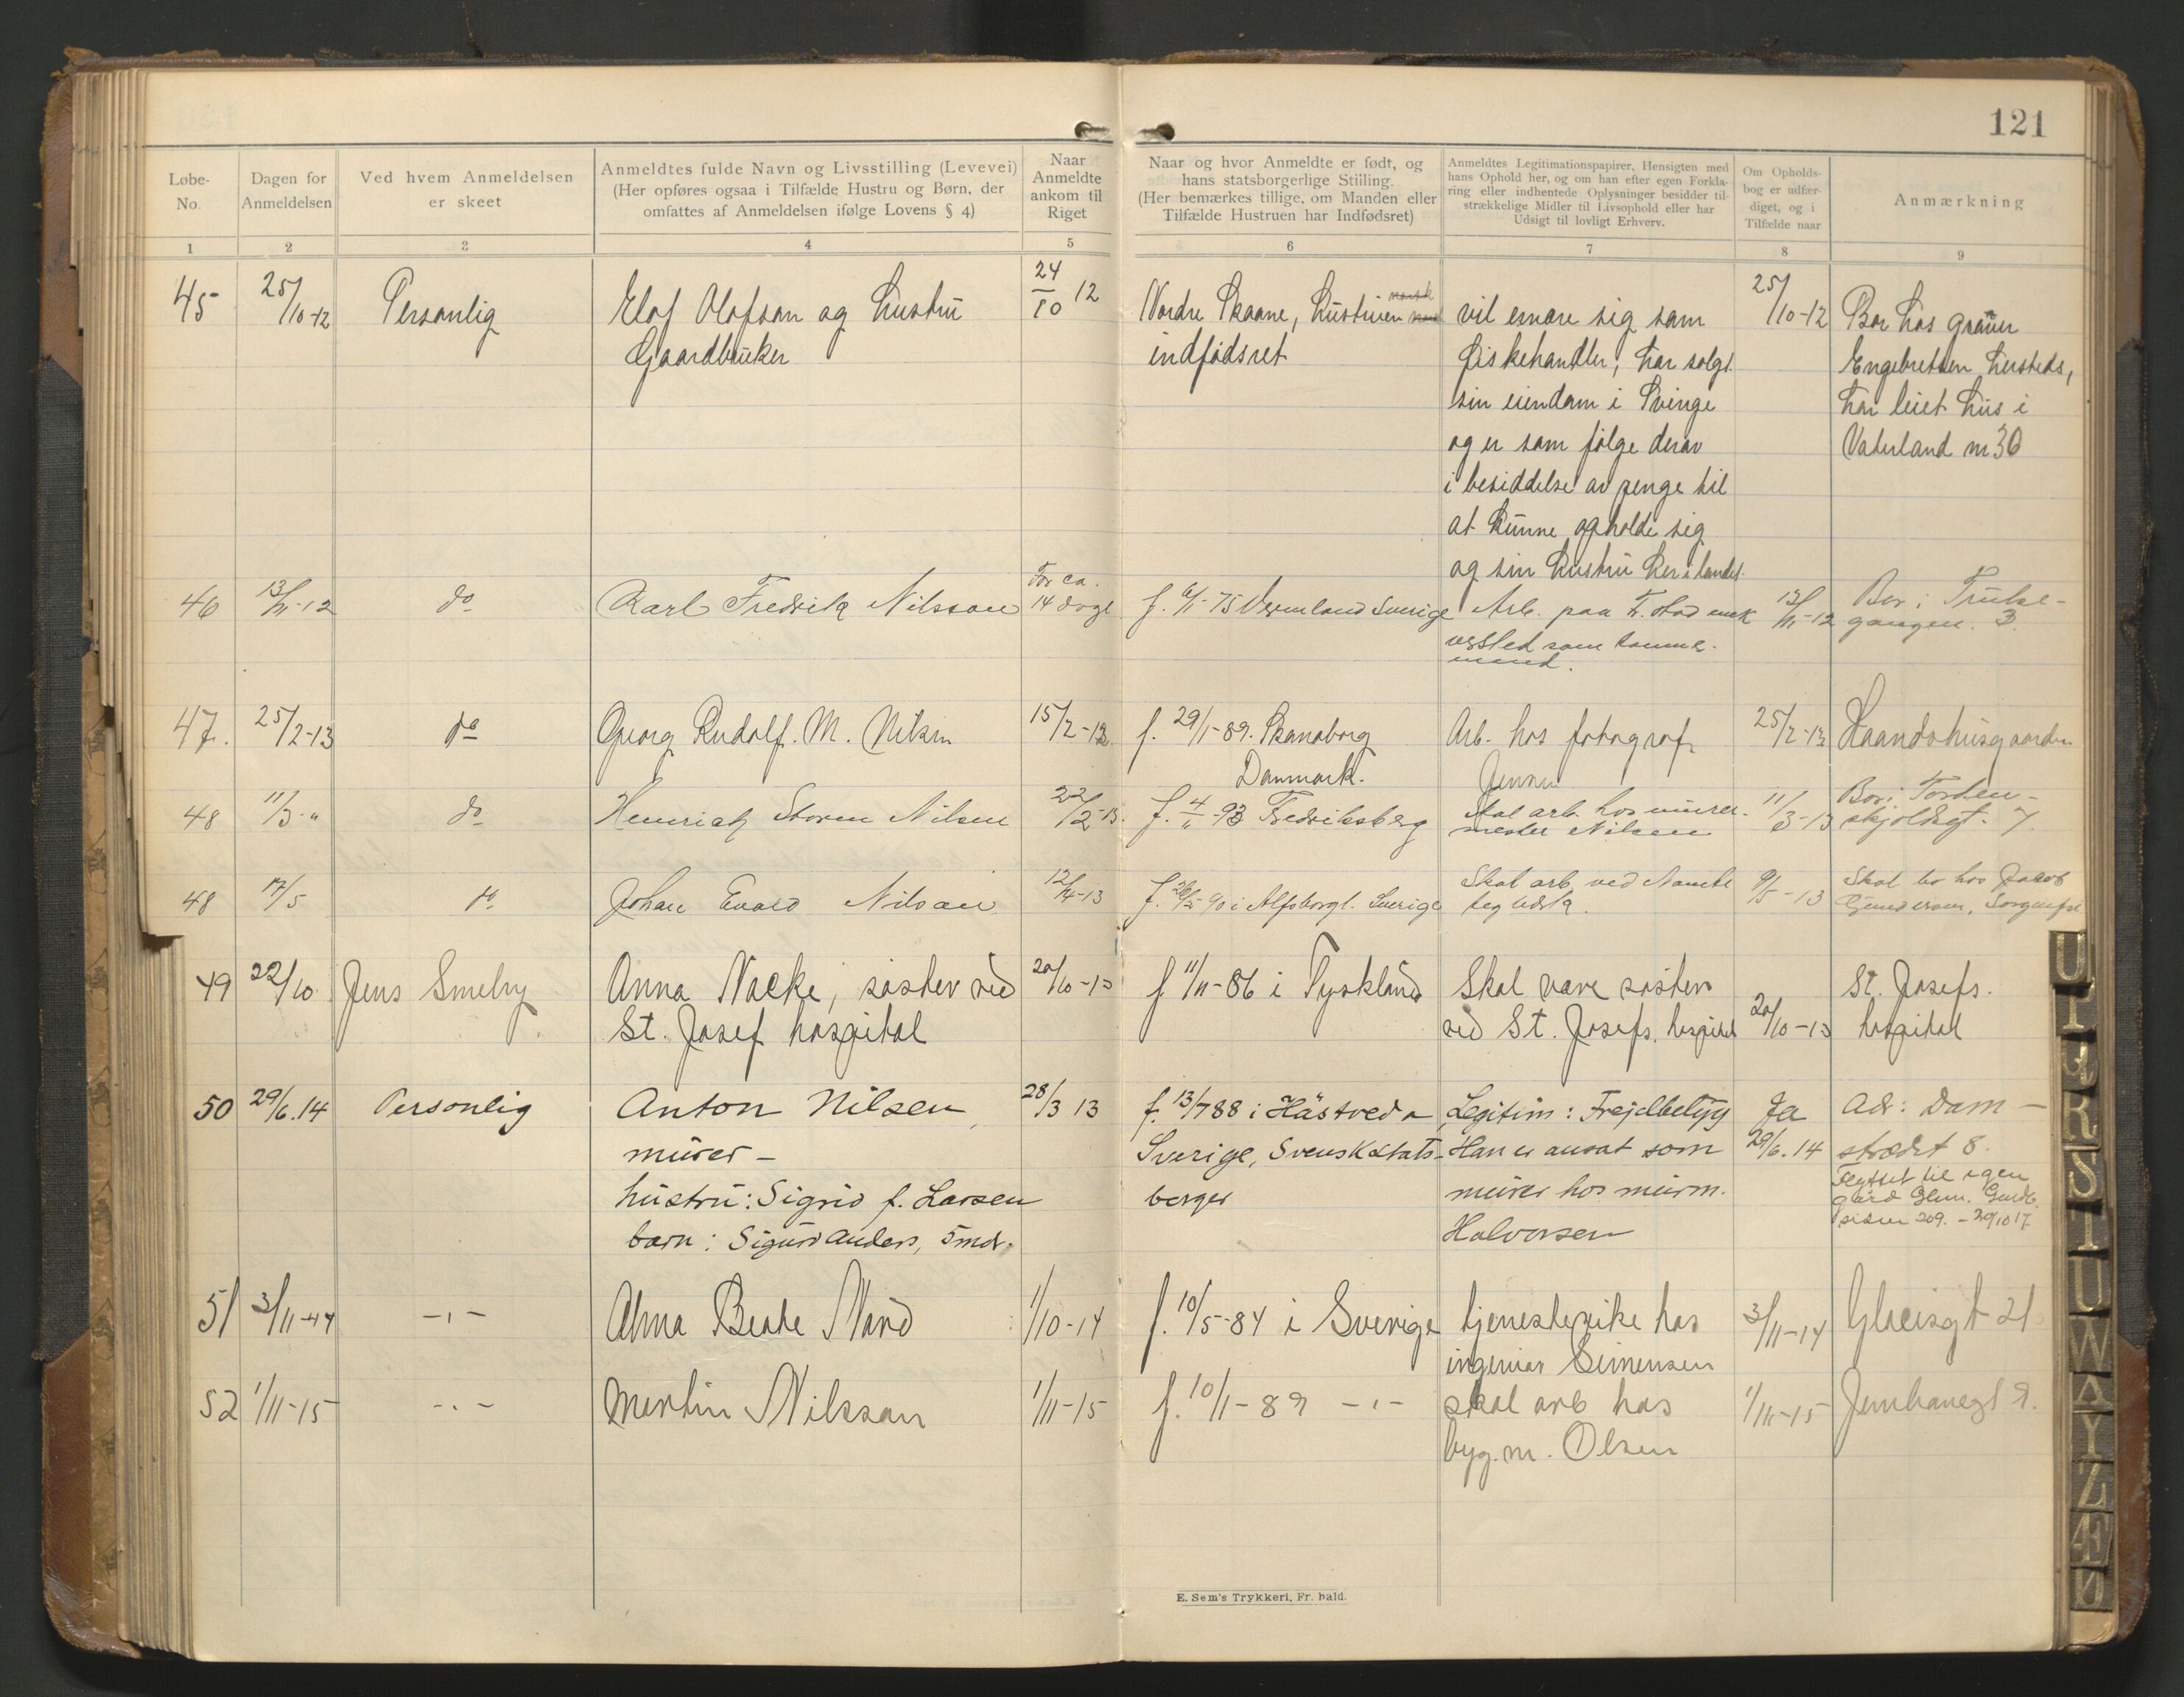 121
Løbe-
No.
Dagen for
Anmeldelsen
Ved hvem Anmeldelsen
er skeet
Anmeldtes fulde Navn og Livsstilling (Levevei)
(Her opføres ogsaa i Tilfælde Hustru og Børn, der
omfattes af Anmeldelsen ifølge Lovens § 4)
Naar
Anmeldte
ankom til
Riget
Naar og hvor Anmeldte er født, og
hans statsborgerlige Stiiling.
(Her bemærkes tillige, om Manden eller
Tilfælde Hustruen har Indfødsret)
Anmeldtes Legitimationspapirer, Hensigten med
hans Ophold her, og om han efter egen Forkla-
ring eller indhentede Oplysninger besidder til-
strækkelige Midler til Livsophold eller har
Udsigt til lovligt Erhverv.
Om Opholds-
bog er udfær-
diget, og i
Tilfælde naar
Anmærkning
1 2 3 4 5 6 7 8 9
45
25/10-12
Personlig
Elof Olofson og hustru
Gaardbruker
24/10 12
Nordre Skaane, hustruen norsk
indfødsret
vil ernære sig som
fiskehandler, har solgt
sin eiendom i Sveirge
og er som følge derav
i besiddelse av penge til
at kunne opholde sig
og sin hustru her i landet.
25/10-12
Bor hos
Engebretsen hersteds,
har leiet hus i
Vaterland nr 30
46
13/11-12
do
Karl Fredrik Nilsson
For ca.
14 dage
f. 6/1-75 Vermland Sverige
Arb. paa Fr.stad mek
versted som
mand.
13/11-12
Bor i Trulse-
gangen. 3.
47.
25/2-13
do
Georg Rudolf. M. Nilsen
15/2-13.
f. 29/1-89. Skanderborg
Danmark.
Arb. hos fotograf
Jensen
25/2-13
Haandv.husgaarden
48
11/3-"
do
Henrich Storm Nilsen
22/2-13.
f. 4/11-93 Fredriksberg
Skal arb. hos murer-
mester Nilsen
11/3-13
Bor i Torden-
skjoldsgt. 7
48
17/5
do
Johan Evald Nilsson
12/4-13
f. 26/5-90 i Alfsborgl. Sverige
Skal arb. ved
teglværk.
9/5-13
Skal bo hos Jacob
Gundersen, Sorgenfri
49
22/10
Jens Smeby
Anna Nacke, søster ved
St. Josef hospital
20/10-13
f 11/11-86 i Tyskland
Skal være søster
ved St. Josefs. hospital
20/10-13
St. Josefs.
hospital
50
29/6.14
Personlig
Anton Nilsen,
murer-
hustru: Sigrid f. Larsen
barn: Sigurd Anders, 5 mdr.
28/3 13
f. 13/7 88 i Hästveda
Sverige, Svensk stats-
borger
Legitim: Frejdbetyg
Han er ansat som
murer hos murm.
Halvorsen
Ja
29/6.14
Adr: Dam-
strædet 8.
Flyttet til egen
gård Glem.
209. - 29/10 17
51
3/11-14
-"-
Alma Beate Nord
1/10-14
f. 10/5-84 i Sverige
tjenestepike hos
ingeniør Simensen
3/11-14
Glacisgt 21
52
1/11-15
-"-
Martin Nilsson
1/11-15
f. 10/1-89 -"-
skal arb hos
byg.m. Olsen
1/11-15
Jernbanegt 9.
E. Sem's Trykkeri, Fr. hald.
U
R
S
T
U
W
Y
Z
Æ
Ø